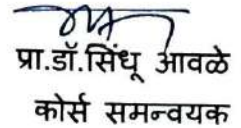 प्रा.डॉ.सिंधू आवळे
कोर्स समन्वयक